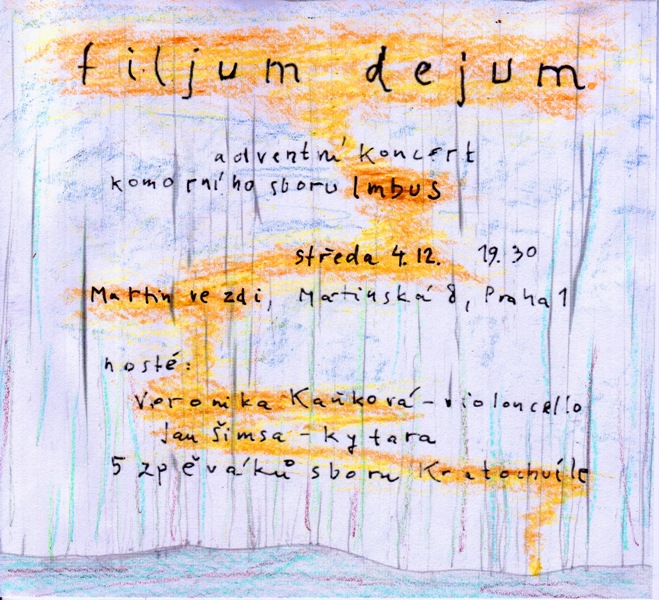 filjum dejum
adventní koncert
komorního sboru Imbus
středa 4.12. 19.30
Martin ve zdi, Martinská 8, Praha 1
hosté:
Veronika Kaňková - violoncello
Jan Šimsa - kytara
5 zpěváků sboru Kratochvíle